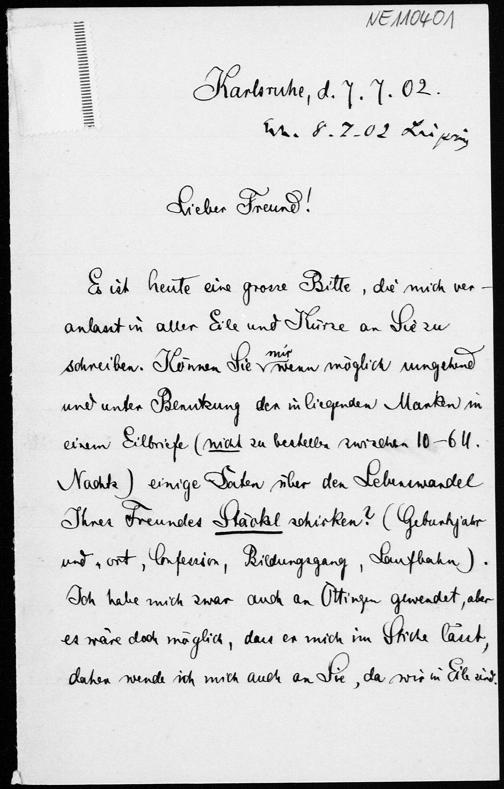 NE110401
Karlsruhe, d. 7. 7. 02.
Erh. 8.7-02 Leipzig
Lieber Freund!
Es ist heute eine grosse Bitte, die mich ver-
anlasst in aller Eile und Kürze an Sie zu
schreiben. Können Sie mir wenn möglich umgehend
und unter Benutzung der inliegenden Marken in
einem Eilbriefe (nicht zu bestellen zwischen 10-6 U.
Nachts) einige Daten über den Lebenswandel
Ihres Freundes Stäckel schicken? (Geburtsjahr
und, -ort, Confession, Bildungsgang, Laufbahn).
Ich habe mich zwar auch an Öttingen gewendet, aber
es wäre doch möglich, dass er mich im Stiche lässt,
daher wende ich mich auch an Sie, da wir in Eile sind.